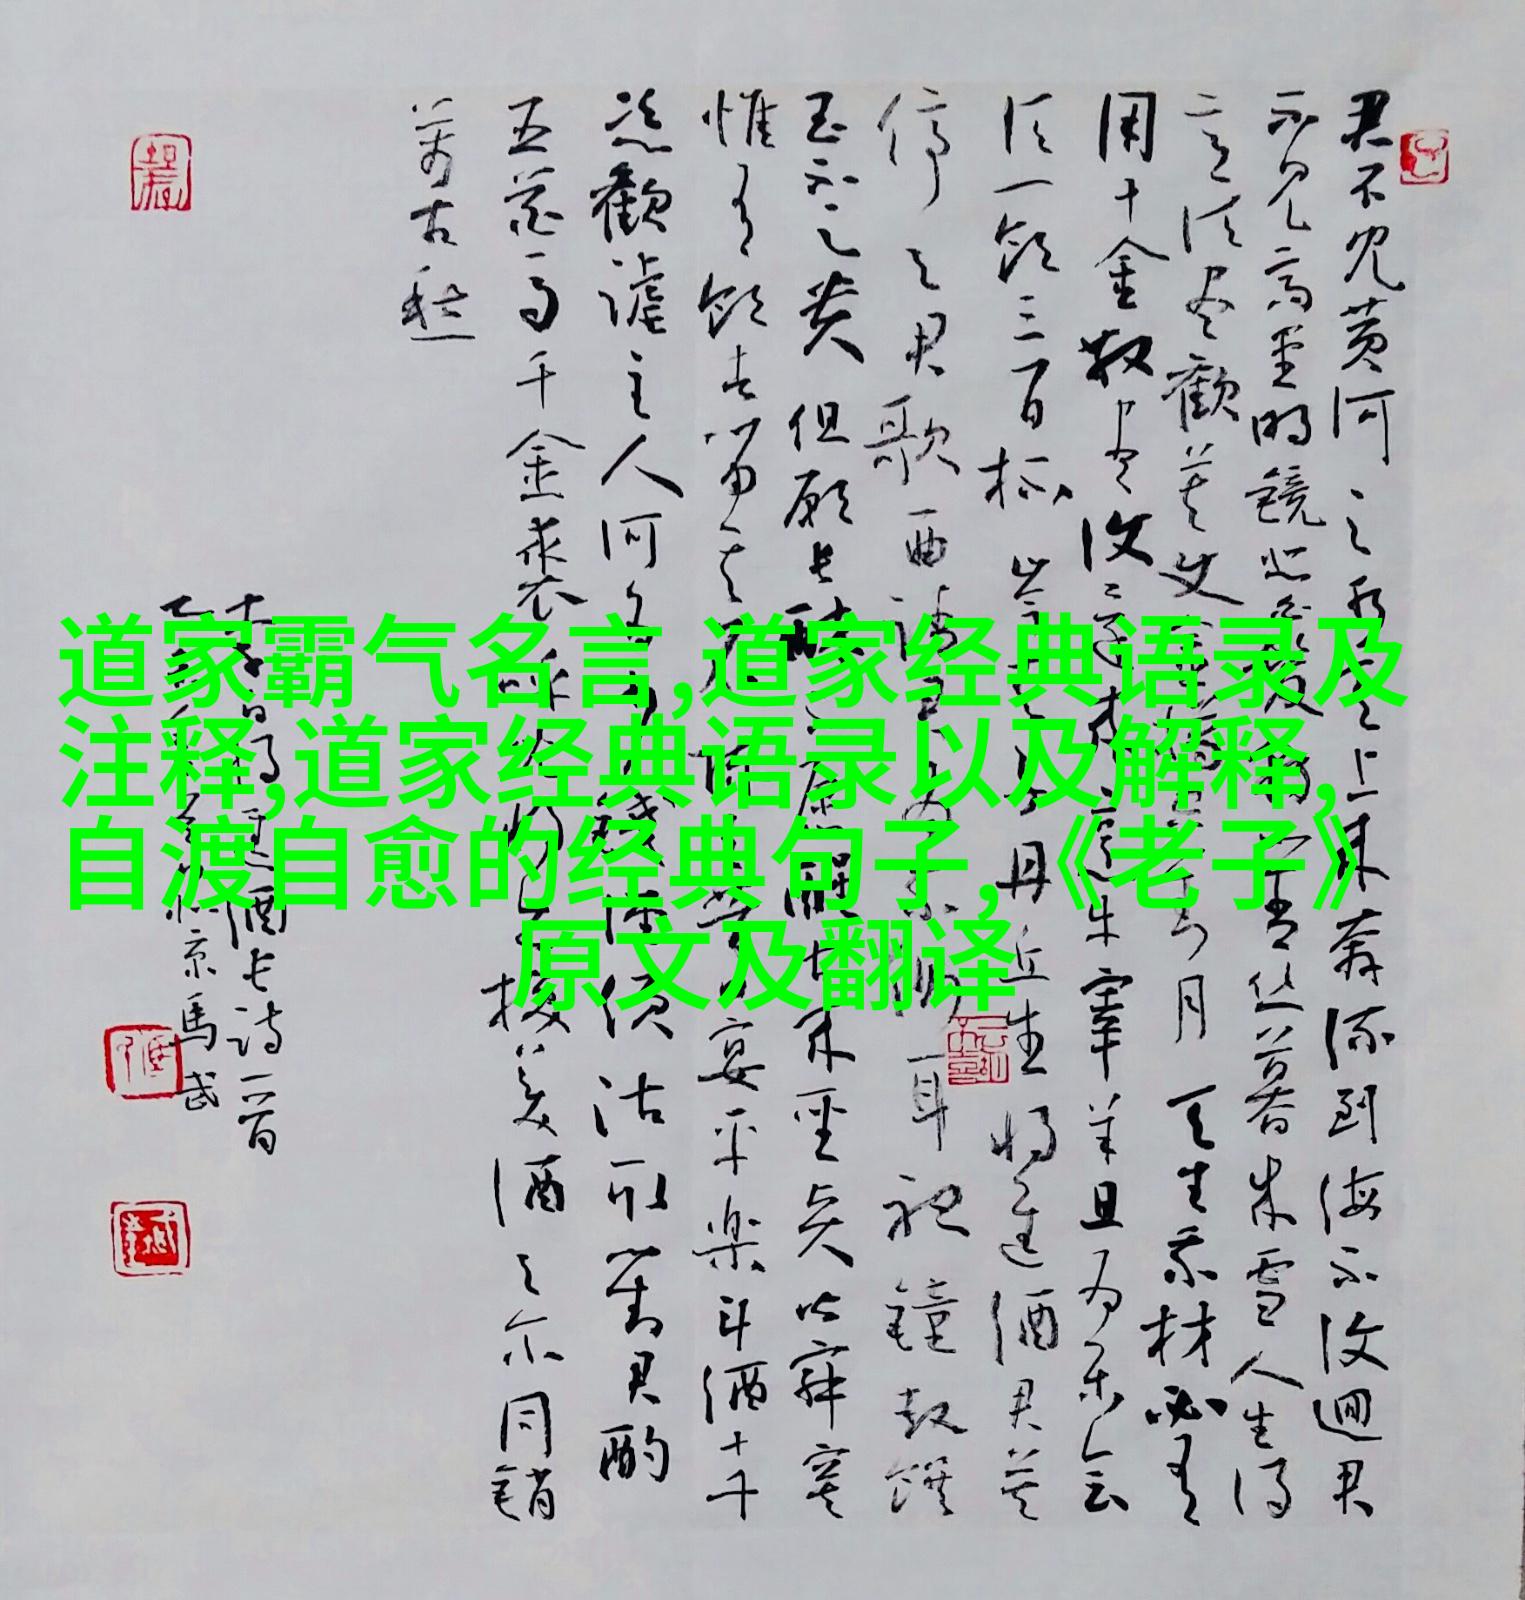 道家霸气名言,道家经典语录及
注释,道家经典语录以及解释,
自渡自愈的经典句子,《老子》
原文及翻译
君不见黄河之水天上来奔流到海不復迴君
不见高堂明镜悲白髮朝如青丝暮成雪人生得
意须尽歡莫使金樽空对月天生我材必有
用千金散尽復還来烹牛宰羊且为乐会
须一饮三百杯岑夫子丹丘生将進酒君莫
停与君歌一曲请君为我倾耳聽鐘鼓馔
玉不足贵但願长醉不愿醒古来聖贤皆寂寞
惟有饮者留其名陈王昔时宴平樂斗酒十千
恣歡謔主人何为言少錢径须沽取对君酌
五花马千金裘呼儿将出换美酒与尔同銷
萬古愁
李白将進酒长诗一首
乙未年京馬武